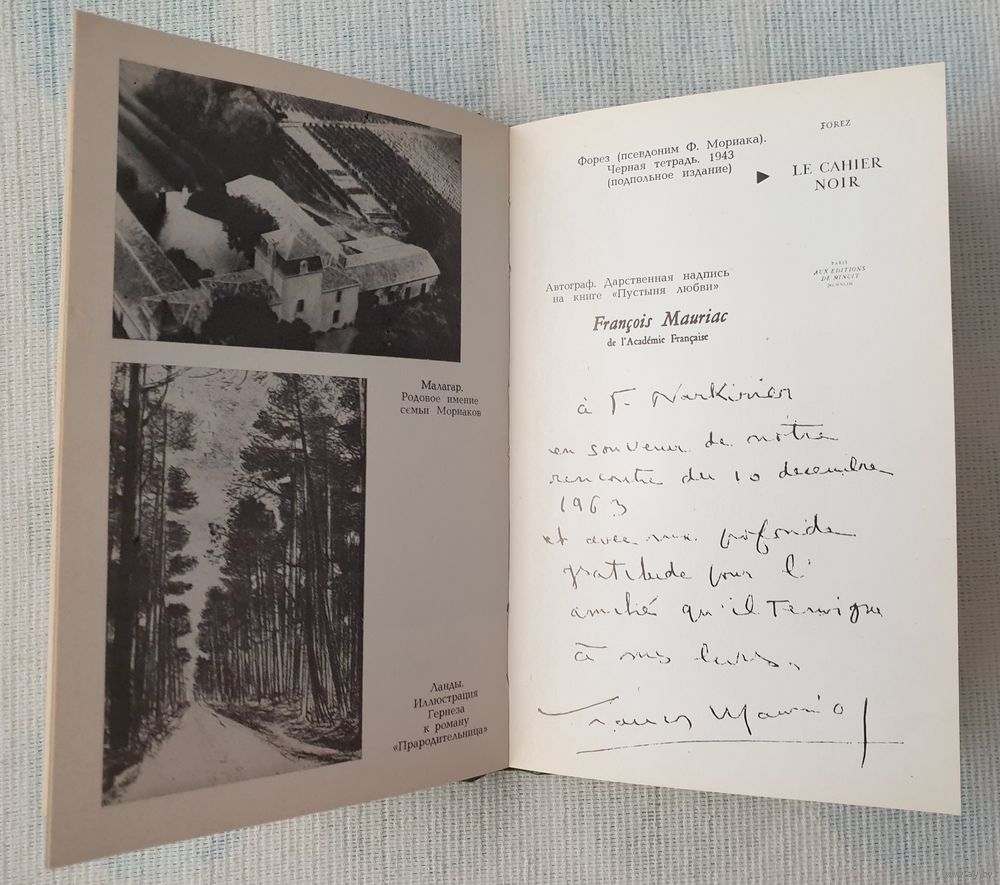 Малагар.
Родовое имение
семьи Мориаков
Ланды.
Иллюстрация
Гернеза
к роману
«Прародительница»
Форез (псевдоним Ф. Мориака).
Черная тетрадь. 1943
(подпольное издание)
FOREZ
LE CAHIER
NOIR
PARIS
AUX EDITIONS
DE MINUIT
Автограф. Дарственная надпись
на книге «Пустыня любви»
François Mauriac
de l'Académie Française
à
en souvenir de notre
rencontre du 10 decembre
1963
et avec ma profonde
gratitude pour l'
amitié qu'il temoigne
à mes livres.
François Mauriac